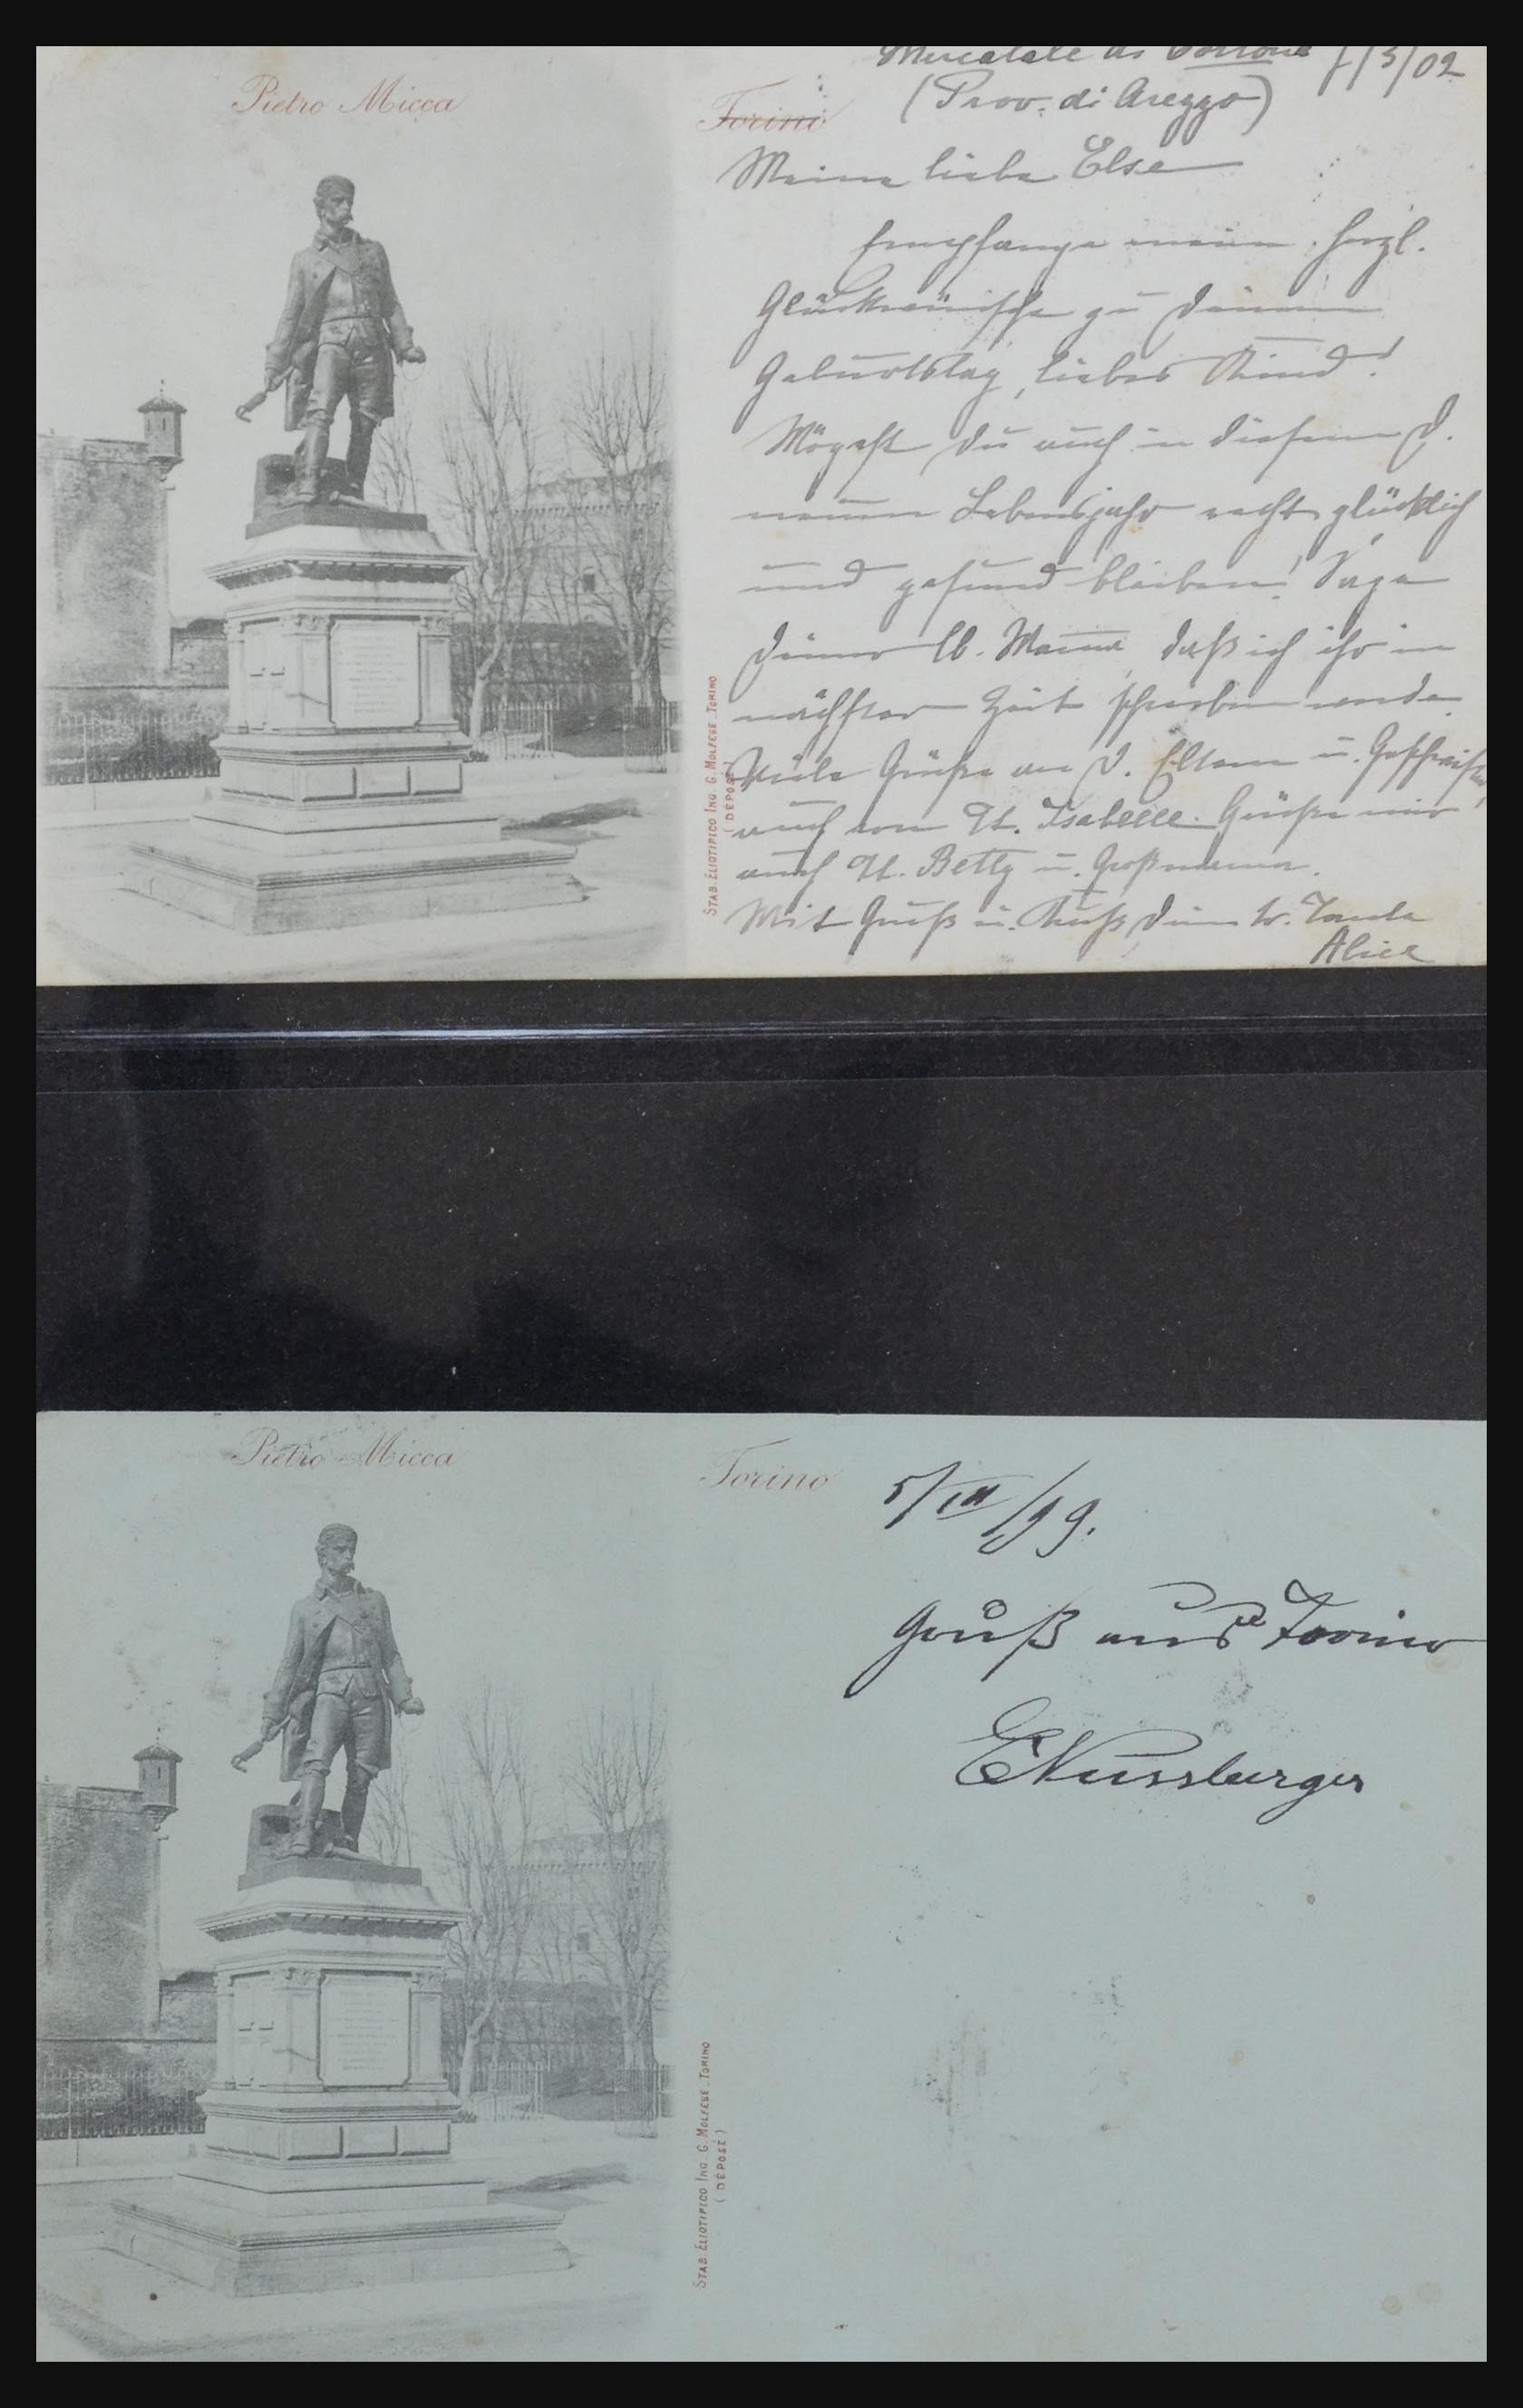 Pietro Micca
Mercatale di Cortona 7/3/02
(Prov. di Arezzo)
Torino
Meine liebe Else
Empfange meine herzl.
Glückwünsche zu Deinem
Geburtstag, liebes Kind!
Mögest Du auch in diesem D.
neuen Lebensjahr recht glücklich
und gesund bleiben! Sage
Deiner lb. Mama, daß ich ihr in
nächster Zeit schreiben werde.
Viele Grüße an D. Eltern u. Geschwister,
auch von Tt. Isabelle. Grüße mir
auch Tt. Betty u. Großmama.
Mit Gruß u. Kuß Deine tr. Tante
Alice
STAB. ELIOTIPICO ING. G. MOLFESE _ TORINO
(DÉPOSÉ)
Pietro Micca
Torino
5/III/99.
Gruß aus Torino
ENussberger
STAB. ELIOTIPICO ING. G. MOLFESE _ TORINO
(DÉPOSÉ)